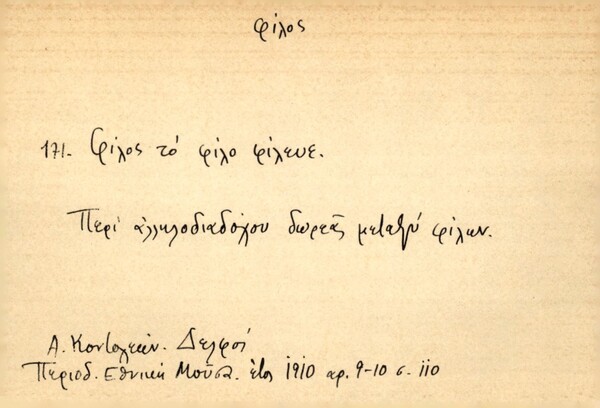 φίλος
171. Φίλος τό φίλο φίλευε.
Περί ἀλληλοδιαδόχου δωρεᾶς μεταξύ φίλων.
Α. Κοντολέων. Δελφοί
Περιοδ. Εθνική Μοῦσα. ἔτος 1910 αρ. 9-10 σ. 110